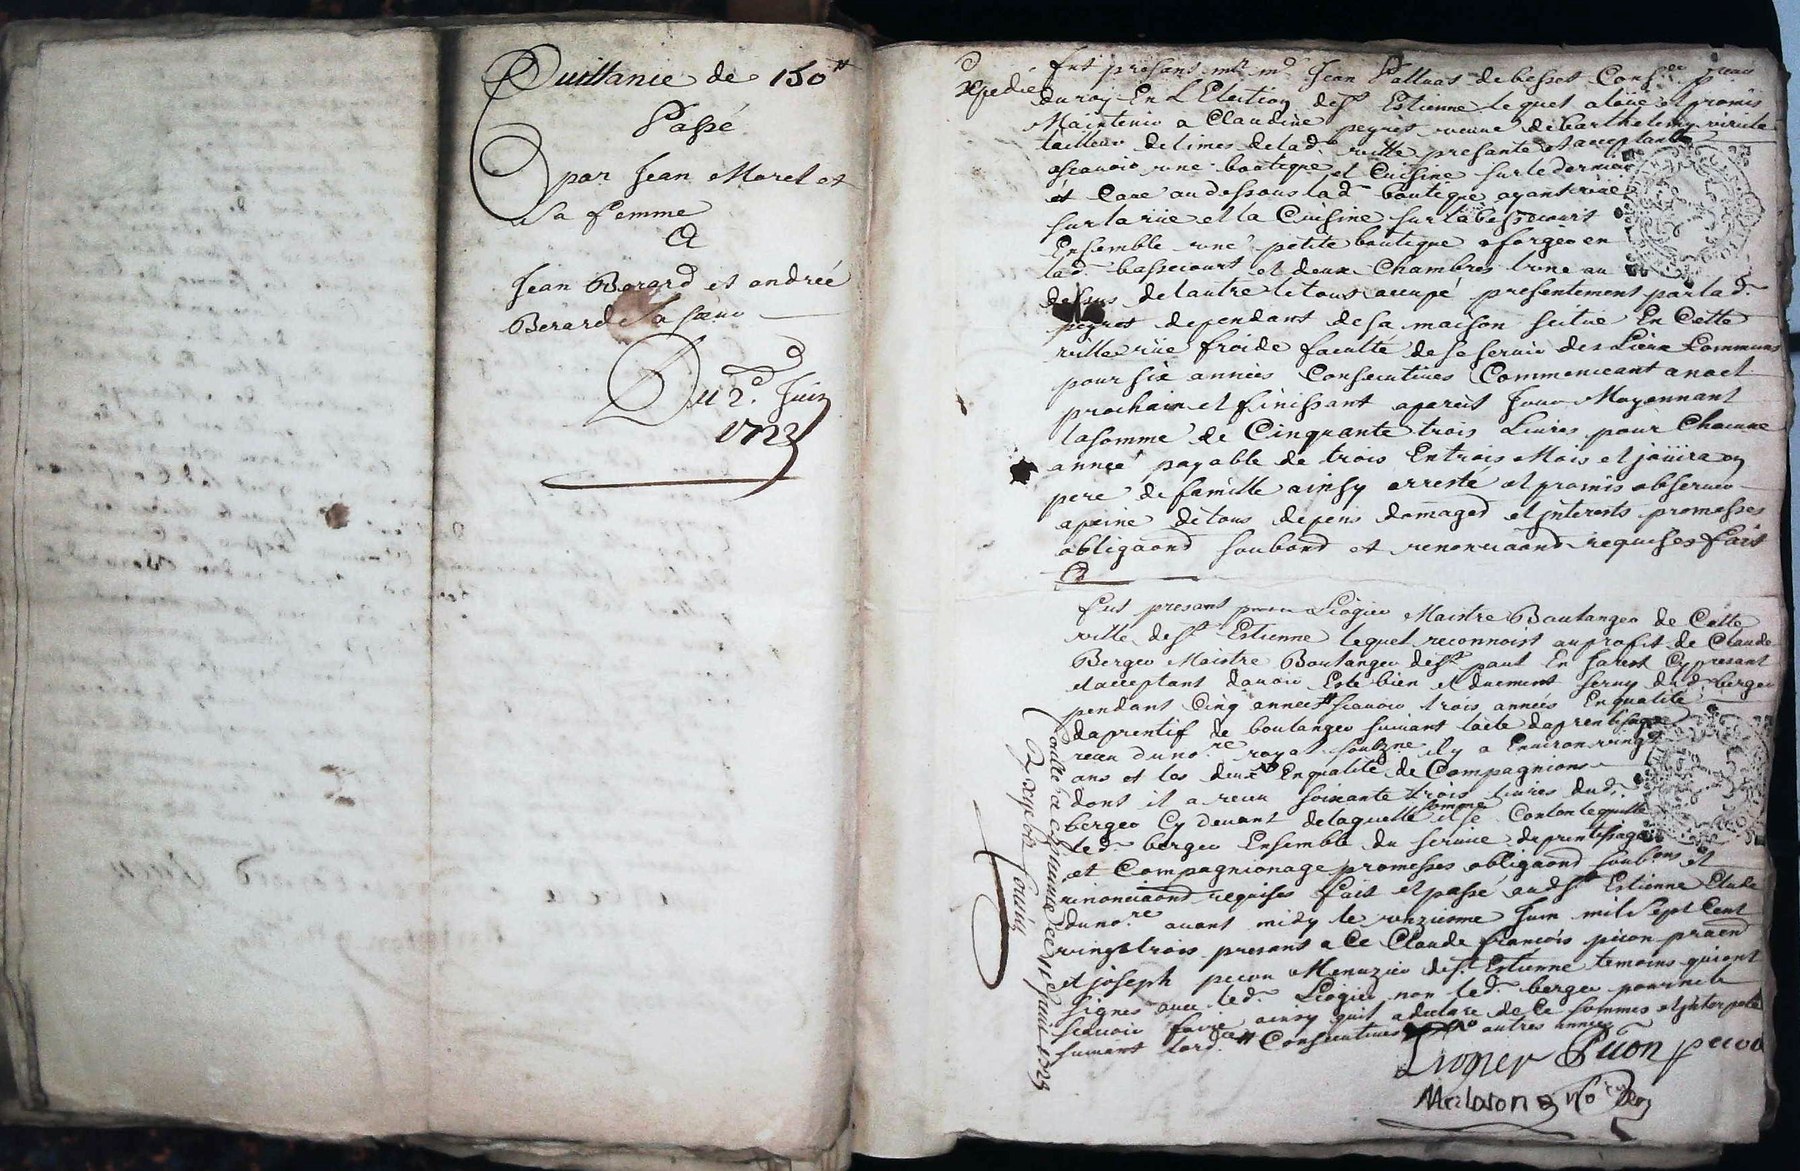 Quittance de 150ᵗᵗ
Passé
par Jean Morel et
Sa femme
A
Jean Berard et andreé
Berard Sa sœur
Du 2ᵉ. Juin
1723
Expedié
fut present mʳ mᵉ Jean de besset Consᵉʳ
du roy En L'Election de Sᵗ Estienne lequel a loüé et promis
Maintenir a Claudine peyret veuve de barthelemy
tailleur de limes de lad. ville presente et acceptante
ascavoir une boutique et Cuisine sur le derrier
et Cave au dessous lad. boutique ayant veüe
sur la rüe et la Cuisine sur la bassecourt
Ensemble une petite boutique a forger en
lad. bassecourt et deux Chambres l'une au
dessus de lautre le tout occupé presentement par lad.
peyret dependant de sa maison scitue En Cette
ville rüe froide faculté de se servir des Lieux Communs
pour six années Consecutives Commenceant a noel
prochain et finissant a pareil Jour Moyennant
la somme de Cinquante trois Livres pour Chacune
année payable de trois En trois Mois et joüira en
pere de famille ainsy arresté et promis observer
a peine de tous depens domages et jnterests promesses
obligaond soubond et renonciaond requises fait
&
fut present Liogier Maistre Boulanger de Cette
ville de Sᵗ Estienne lequel reconnoist au profit de Claude
Berger Maistre Boulanger de Sᵗ paul En Jarest Cy present
et acceptant davoir Esté bien et duement servy dud. berger
pendant Cinq années scavoir trois années En qualité
daprentif de boulanger suivant lacte daprentissage
receu du noʳᵉ royal soubzné il y a Environ vingt
ans et les deux En qualité de Compagnions
dont il a receu soixante trois livres dud.
berger Cy devant de laquelle somme il se Contente quitte
led. berger Ensemble du service daprentissage
et Compagnionage promesses obligaond soubons et
renonciaond requises fait et passé aud Sᵗ Estienne Etude
du noʳᵉ avant midy le onzieme Juin mil Sept Cent
vingt trois present a Ce Claude françois picon praend
et joseph picon Menuzier de Sᵗ Estienne temoins qui ont
signés avec led. Liogier non led. berger pour ne le
scavoir faire ainsy quil a declaré de Ce sommés et jnterpelé
suivant lord. Consecutives autres années
Liogier Picon picon
Merlaton noʳᵉ Roy
Controllé a Sᵗ Estienne le Juin 1723
R